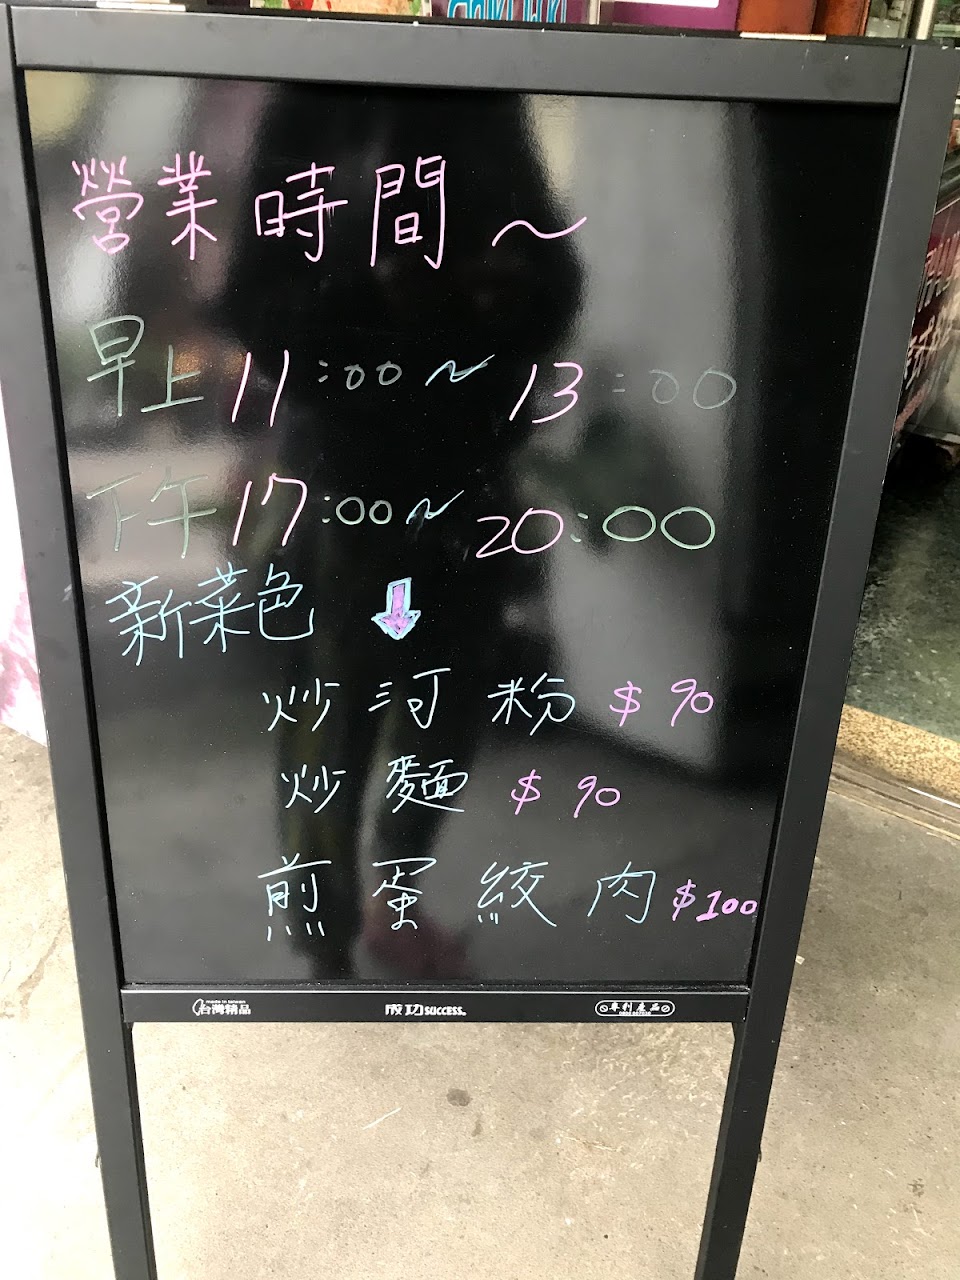 營業時間～
早上11:00～13:00
下午17:00～20:00
新菜色↓
炒河粉$90
炒麵$90
煎蛋絞肉$100
made in taiwan
台灣精品 成功SUCCESS 專利產品